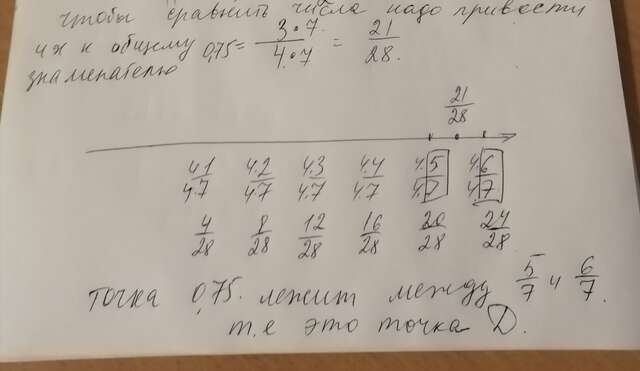 чтобы сравнить числа надо привести
их к общему 0,75 = 3·7/4·7 = 21/28.
знаменателю
21/28
4·1/4·7 4·2/4·7 4·3/4·7 4·4/4·7 4·5/4·7 4·6/4·7
4/28 8/28 12/28 16/28 20/28 24/28
точка 0,75. лежит между 5/7 и 6/7.
т.е это точка D.